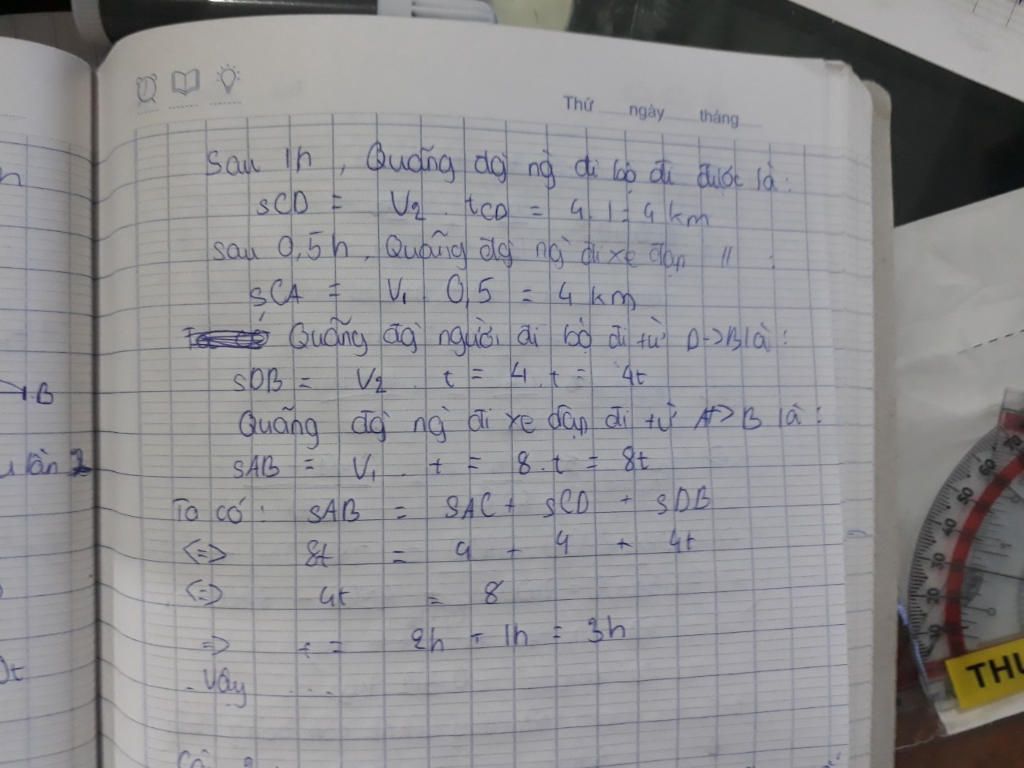 Thứ ngày tháng
Sau 1h, Quãng đg ng đi bộ đi được là:
SCD = V2 . tCD = 4.1 = 4 km
sau 0,5h, Quãng đg ng đi xe đạp " :
SCA = V1 0,5 = 4 km
Quãng đg người đi bộ đi từ D->B là:
SDB = V2 . t = 4.t = 4t
Quãng đg ng đi xe đạp đi từ A->B là:
SAB = V1 . t = 8.t = 8t
Ta có: SAB = SAC + SCD + SDB
<=> 8t = 4 + 4 + 4t
<=> 4t = 8
=> t = 2h + 1h = 3h
Vậy ....
B
u lần 2
THU